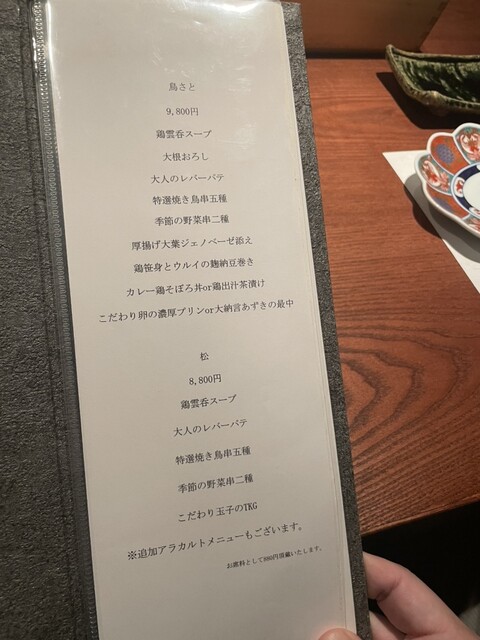 鳥さと
9,800円
鶏雲呑スープ
大根おろし
大人のレバーパテ
特選焼き鳥串五種
季節の野菜串二種
厚揚げ大葉ジェノベーゼ添え
鶏笹身とウルイの麹納豆巻き
カレー鶏そぼろ丼or鶏出汁茶漬け
こだわり卵の濃厚プリンor大納言あずきの最中
松
8,800円
鶏雲呑スープ
大人のレバーパテ
特選焼き鳥串五種
季節の野菜串二種
こだわり玉子のTKG
※追加アラカルトメニューもございます。
お席料として880円頂戴いたします。